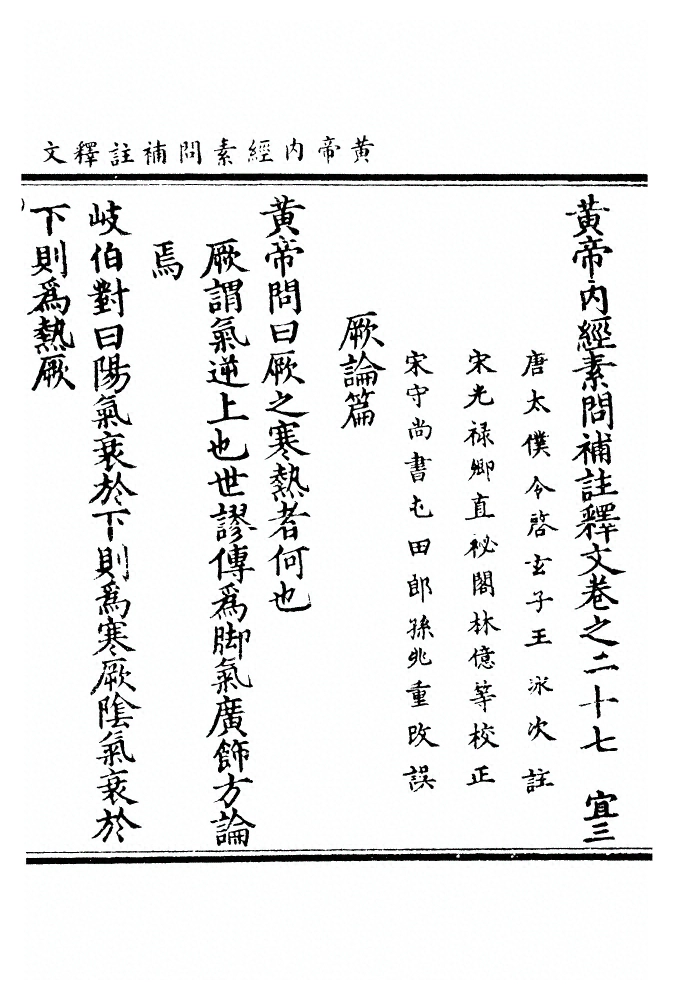 黃帝內經素問補註釋文
黃帝內經素問補註釋文卷之二十七 宜三
唐太僕令啓玄子王冰次註
宋光祿卿直祕閣林億等校正
宋守尚書屯田郎孫兆重改誤
厥論篇
黃帝問曰厥之寒熱者何也
厥謂氣逆上也世謬傳爲脚氣廣飾方論
焉
岐伯對曰陽氣衰於下則爲寒厥陰氣衰於
下則爲熱厥